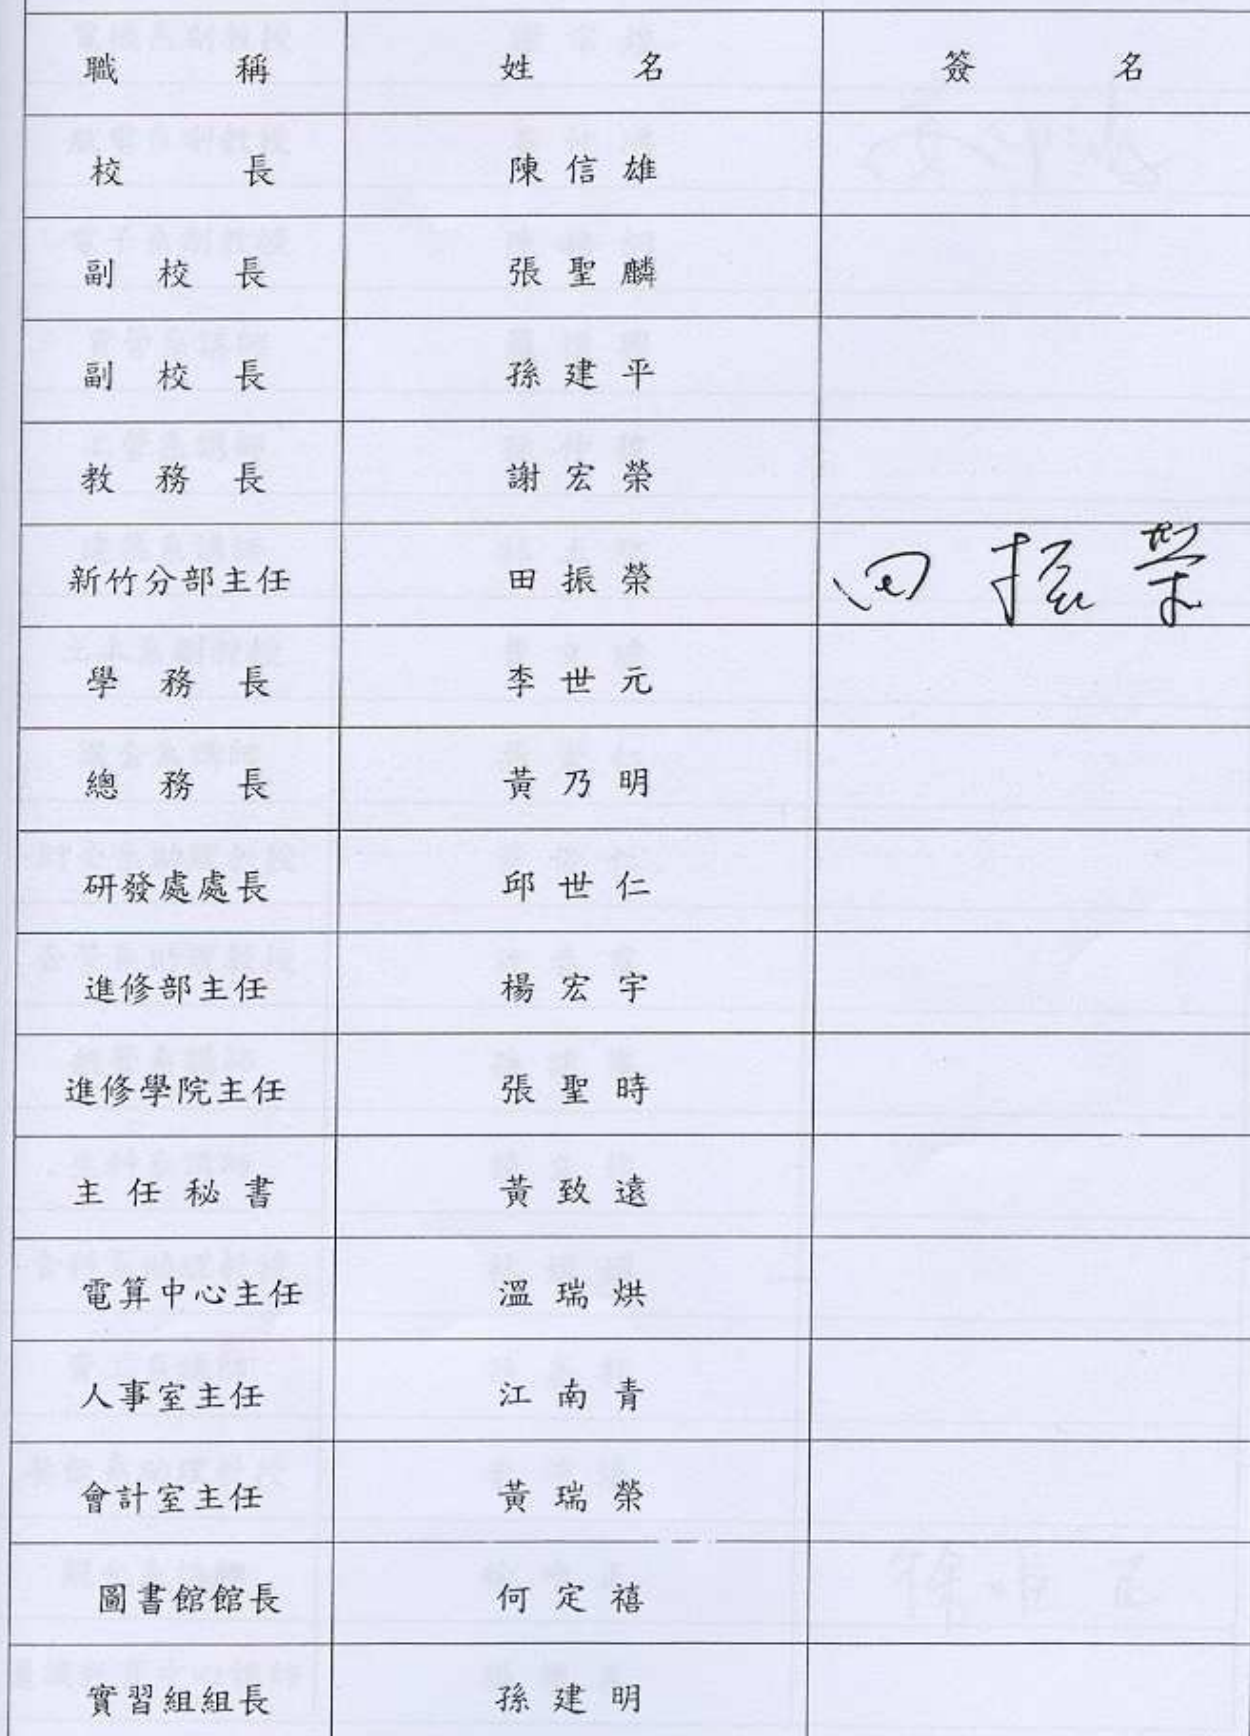 職稱 姓名 簽名
校長 陳信雄
副校長 張聖麟
副校長 孫建平
教務長 謝宏榮
新竹分部主任 田振榮 田振榮
學務長 李世元
總務長 黃乃明
研發處處長 邱世仁
進修部主任 楊宏宇
進修學院主任 張聖時
主任秘書 黃致遠
電算中心主任 溫瑞烘
人事室主任 江南青
會計室主任 黃瑞榮
圖書館館長 何定禧
實習組組長 孫建明